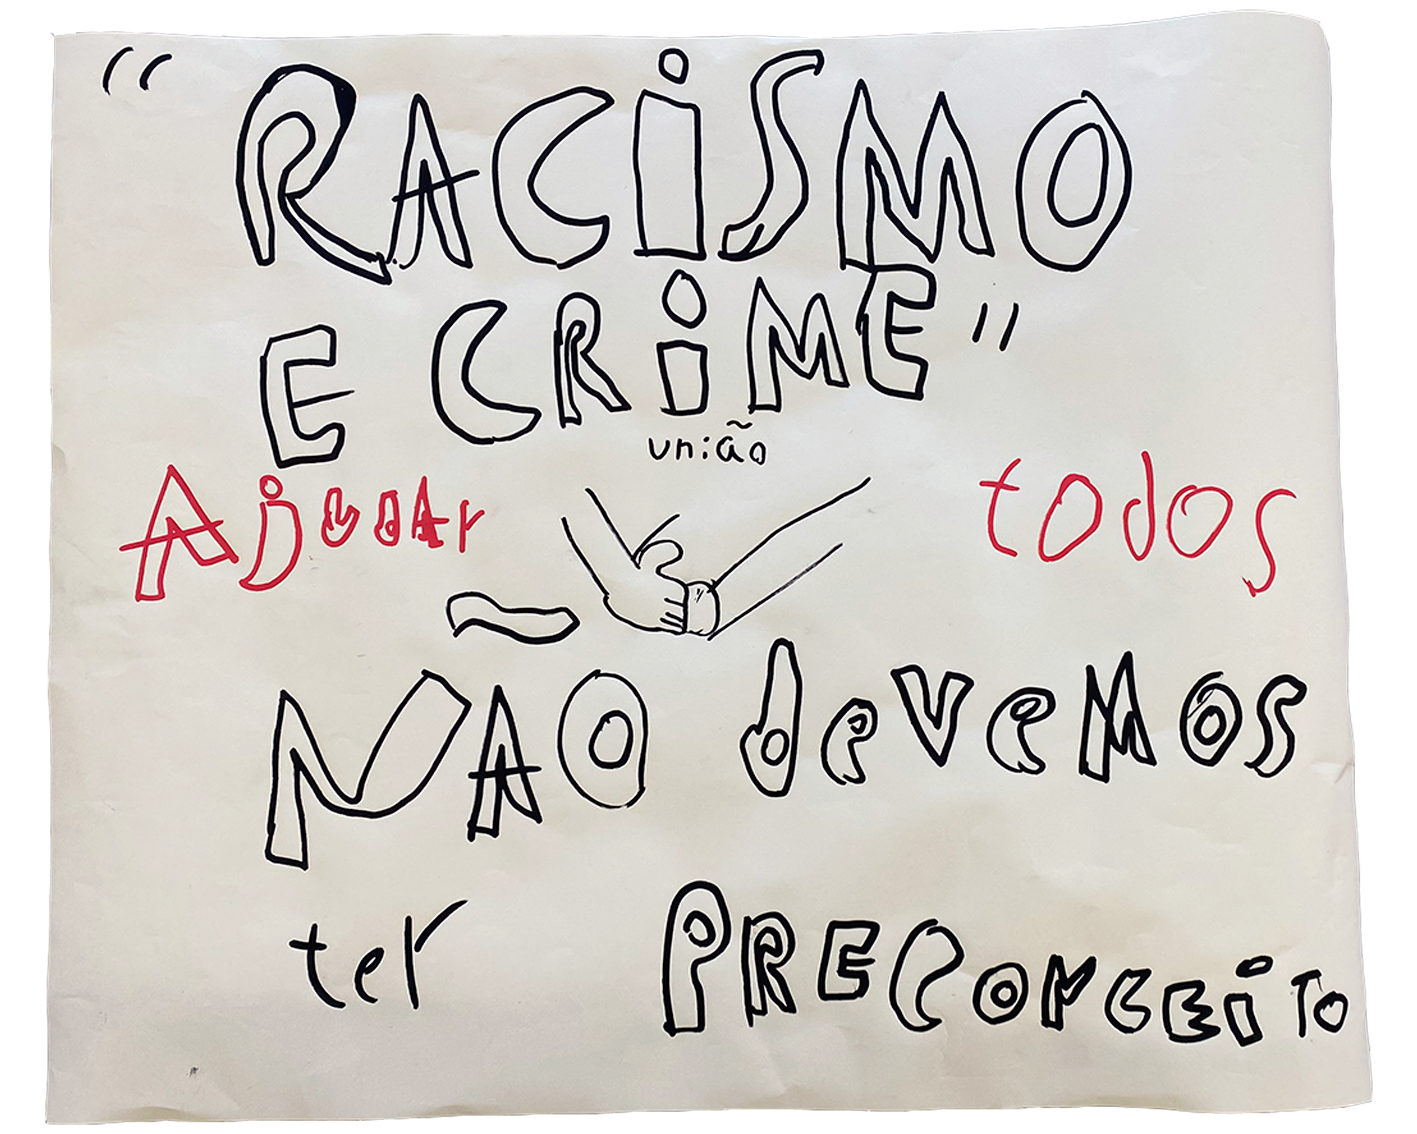 “RACiSMO
E CRiME”
união
AjudAr todos
NÃO deveMos
ter PRECONCEiTo